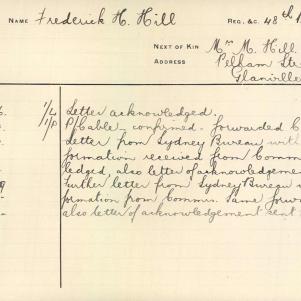 NAME Frederick H. Hill REG. &C. 48th
NEXT OF KIN Mrs M. Hill
ADDRESS Pelham Str
Glanville
1/L Letter acknowledged.
1/P P/Cable confirmed. Forwarded
Letter from Sydney Bureau with
formation received from Comm
ledged, also letter of acknowledgeme
Further letter from Sydney Bureau
formation from Commrs. Same forwar
also letter of acknowledgement sent